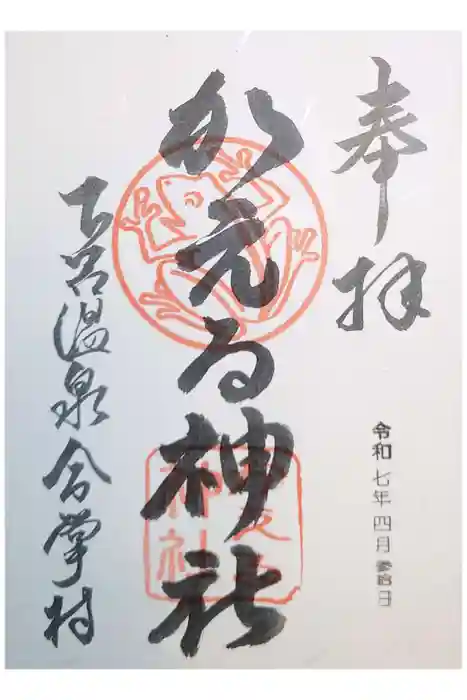 奉拝
令和七年四月参拾日
かえる神社
下呂温泉合掌村